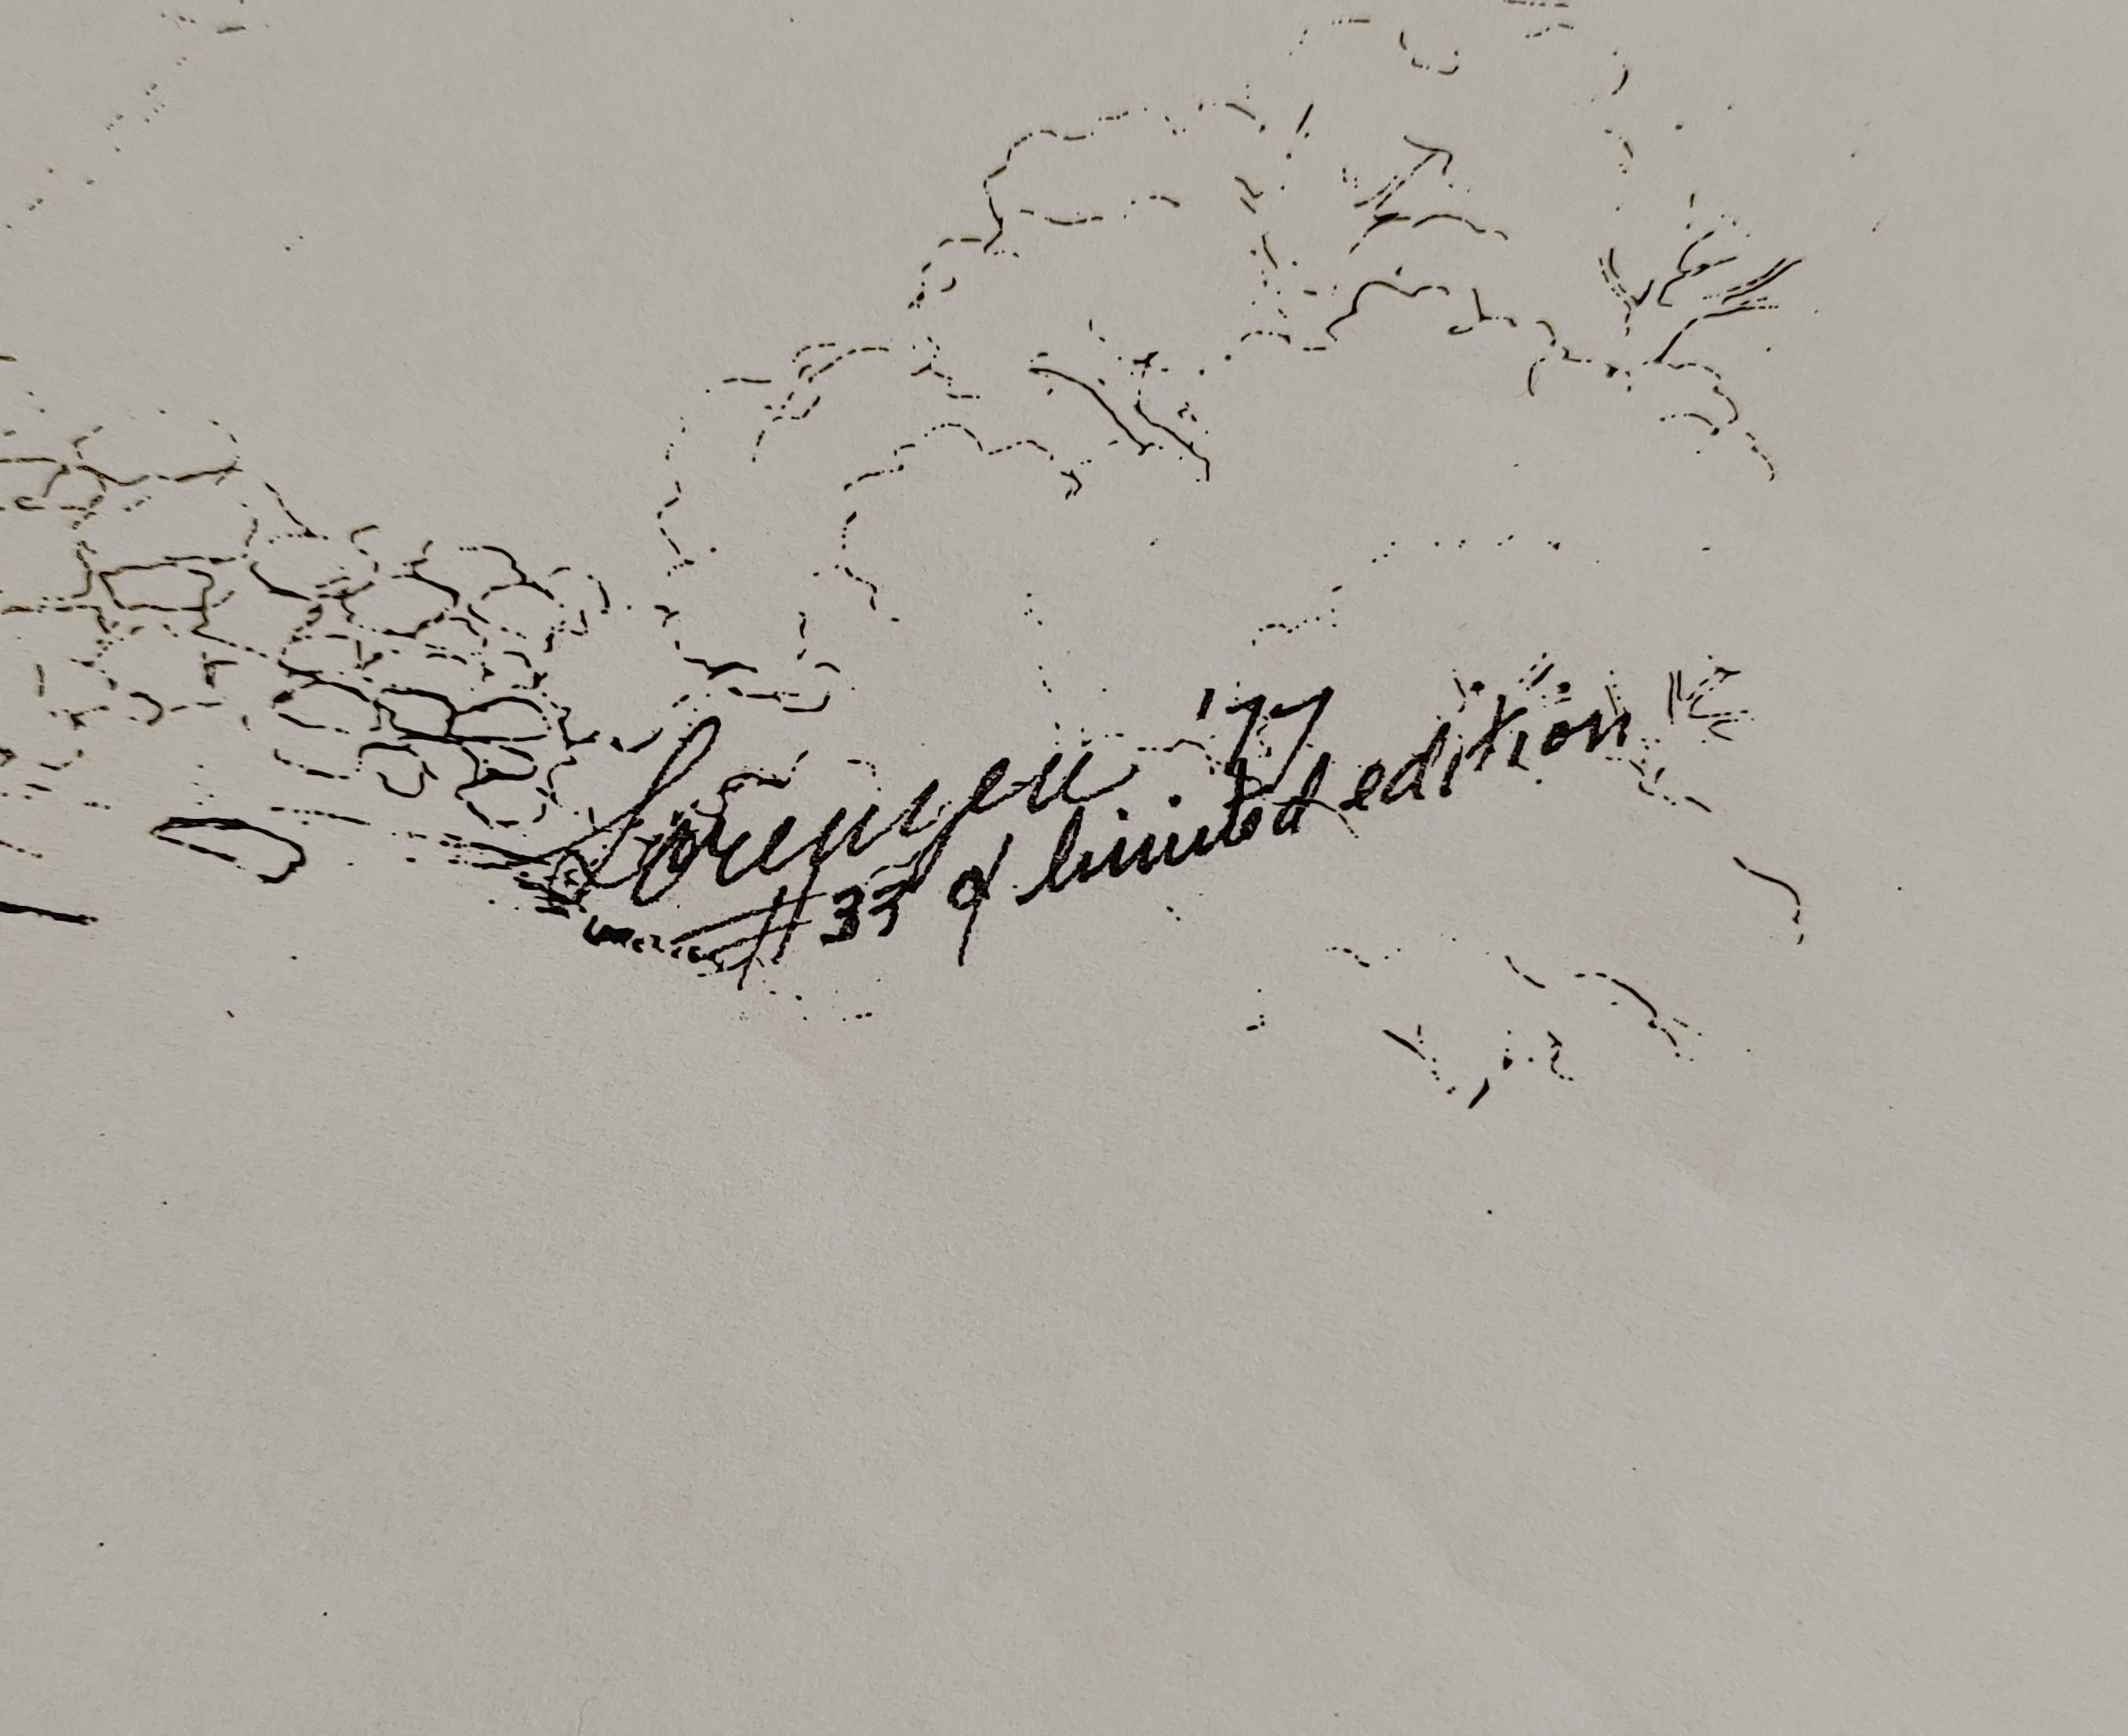 Lorenzen '77
#33 of limited edition